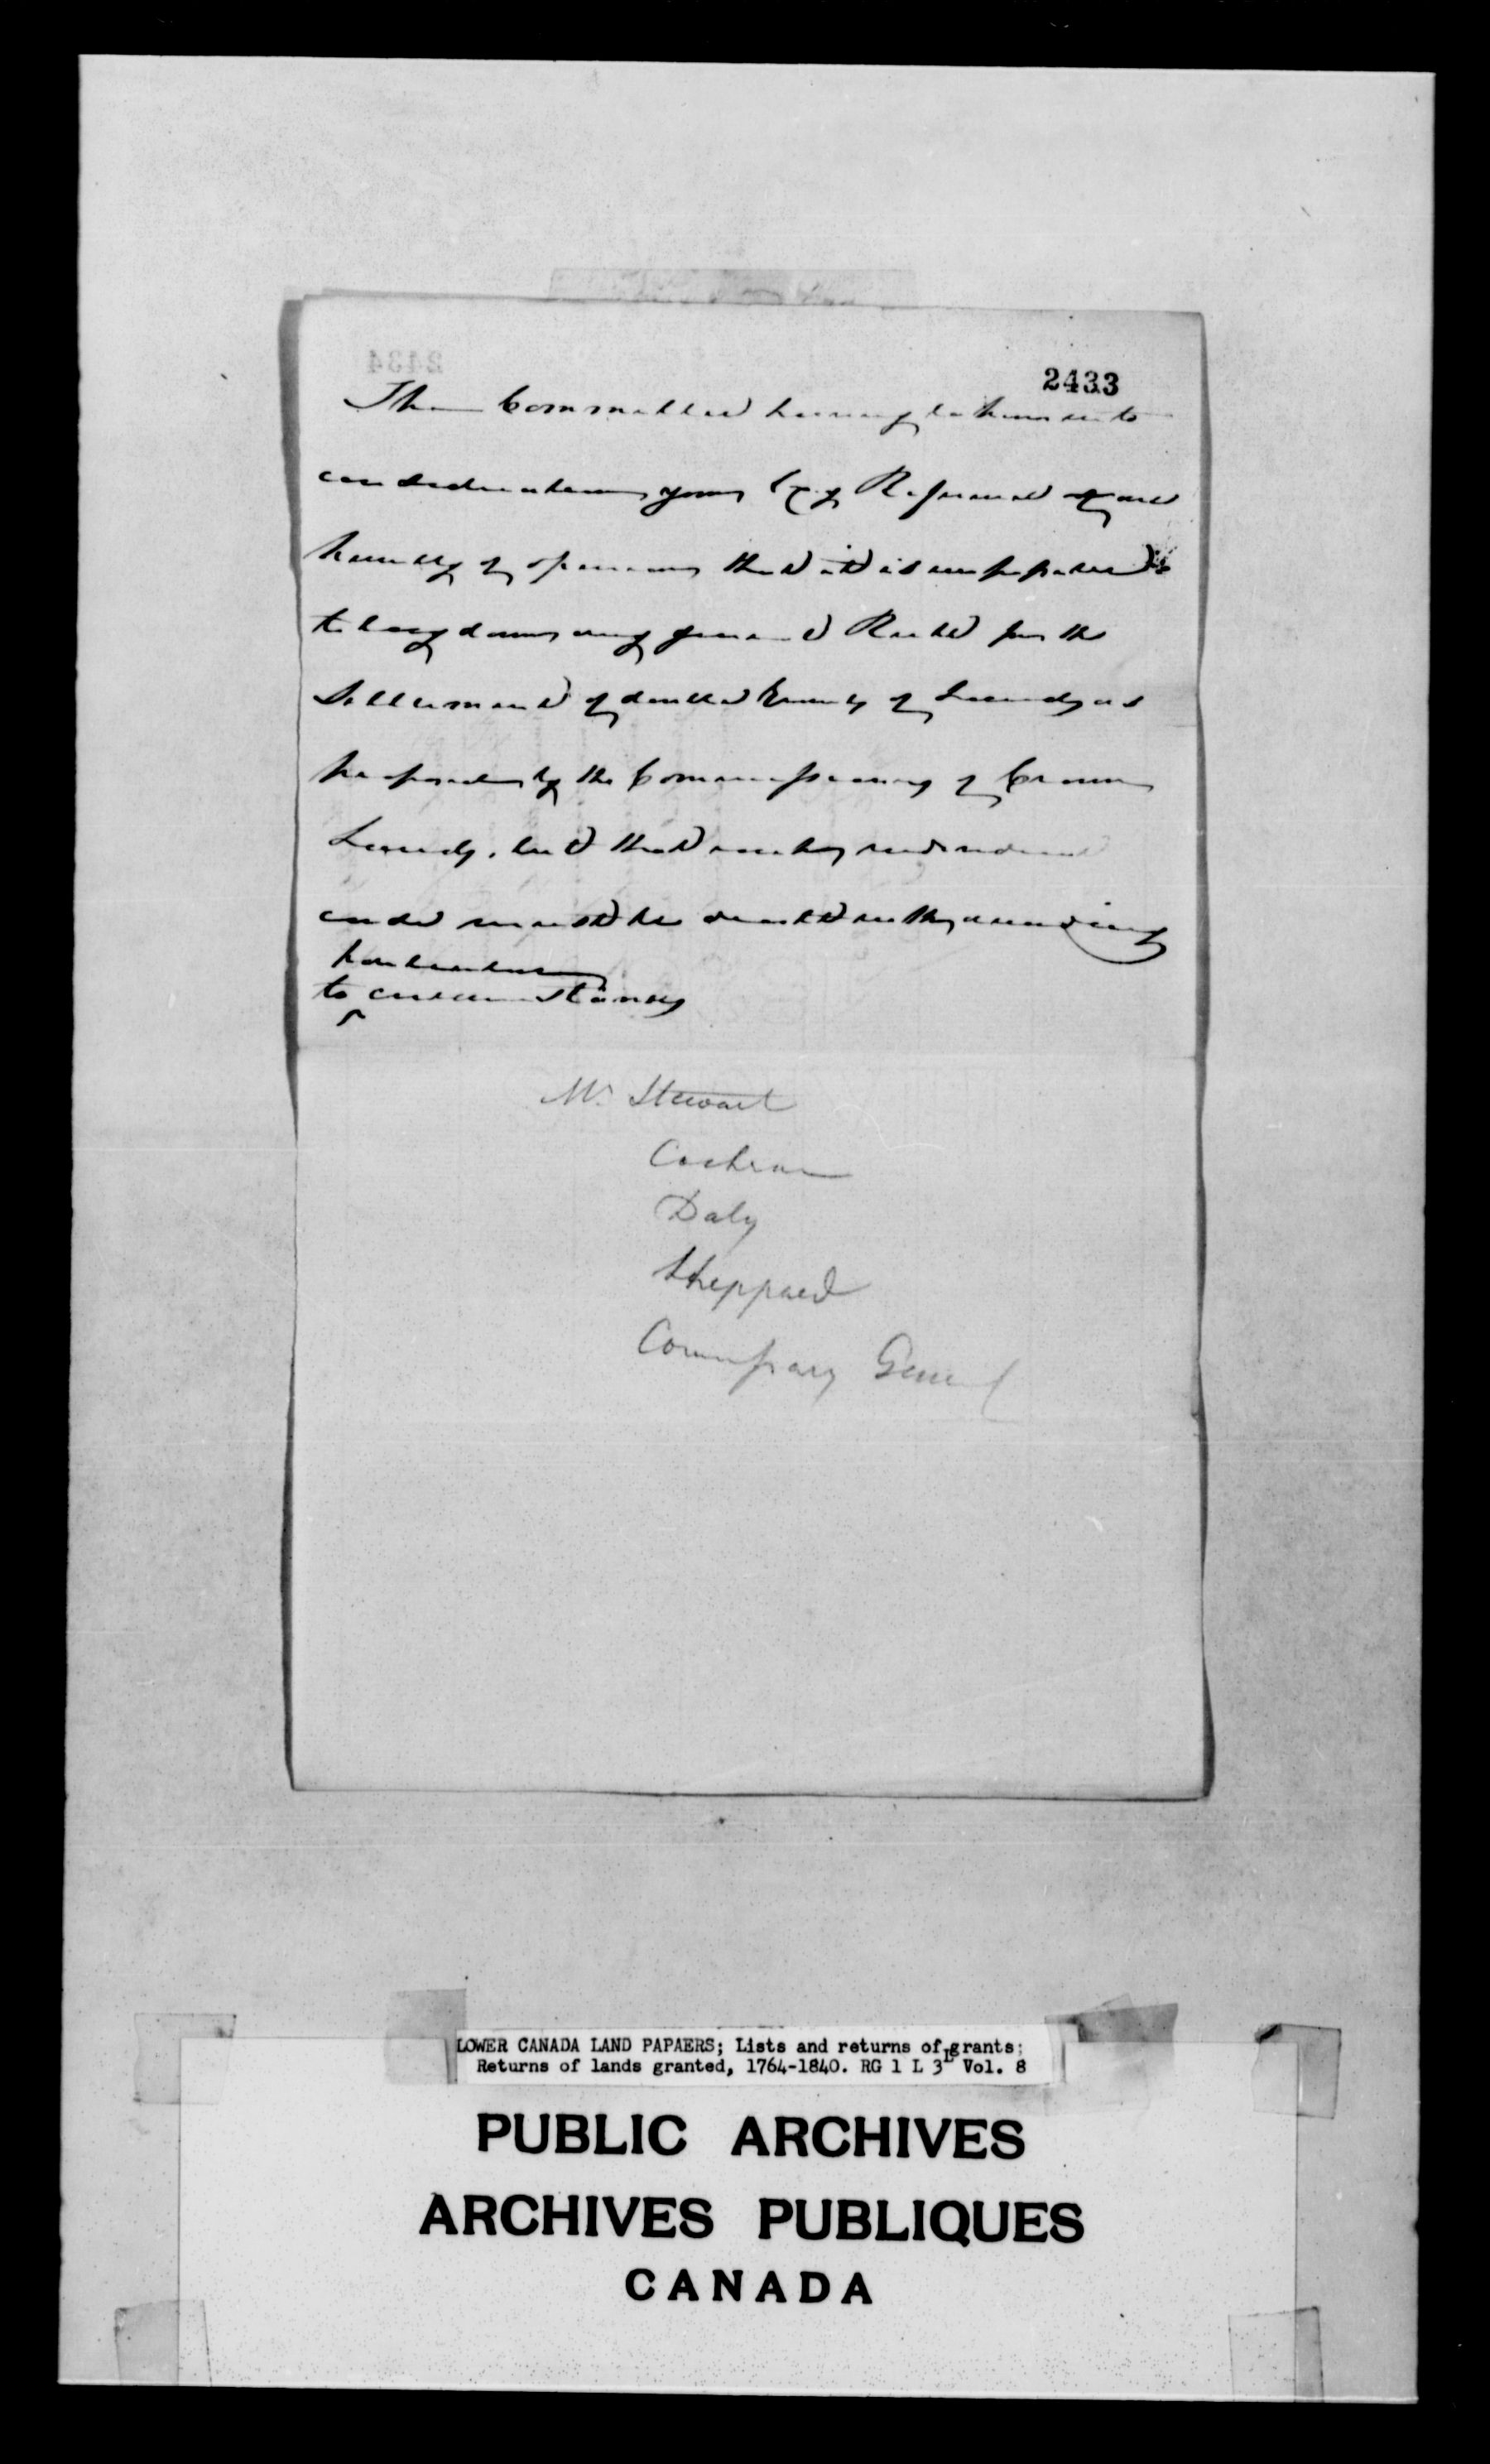 2433
The Committee having taken into
consideration your Exy Reference are
humbly of opinion that it is impossible
to lay down any general Rule for the
Settlement of double Grants of Lands as
proposed by the Commissioner of Crown
Lands, but that each individual
case must be dealt with according
particular
to circumstances
Mr Stewart
Cochran
Daly
Sheppard
Commissary General
LOWER CANADA LAND PAPAERS; Lists and returns of grants;
Returns of lands granted, 1764-1840. RG 1 L 3L Vol. 8
PUBLIC ARCHIVES
ARCHIVES PUBLIQUES
CANADA